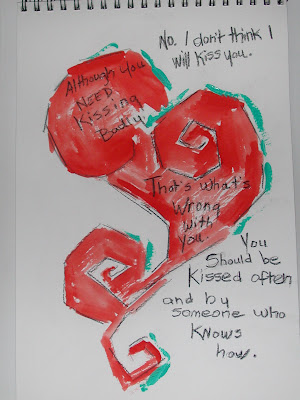 No. I don't think I
will Kiss you.
Although you
NEED
Kissing
Badly
That's what's
Wrong
With
You.
You
Should be
Kissed often
and by
someone who
Knows
how.